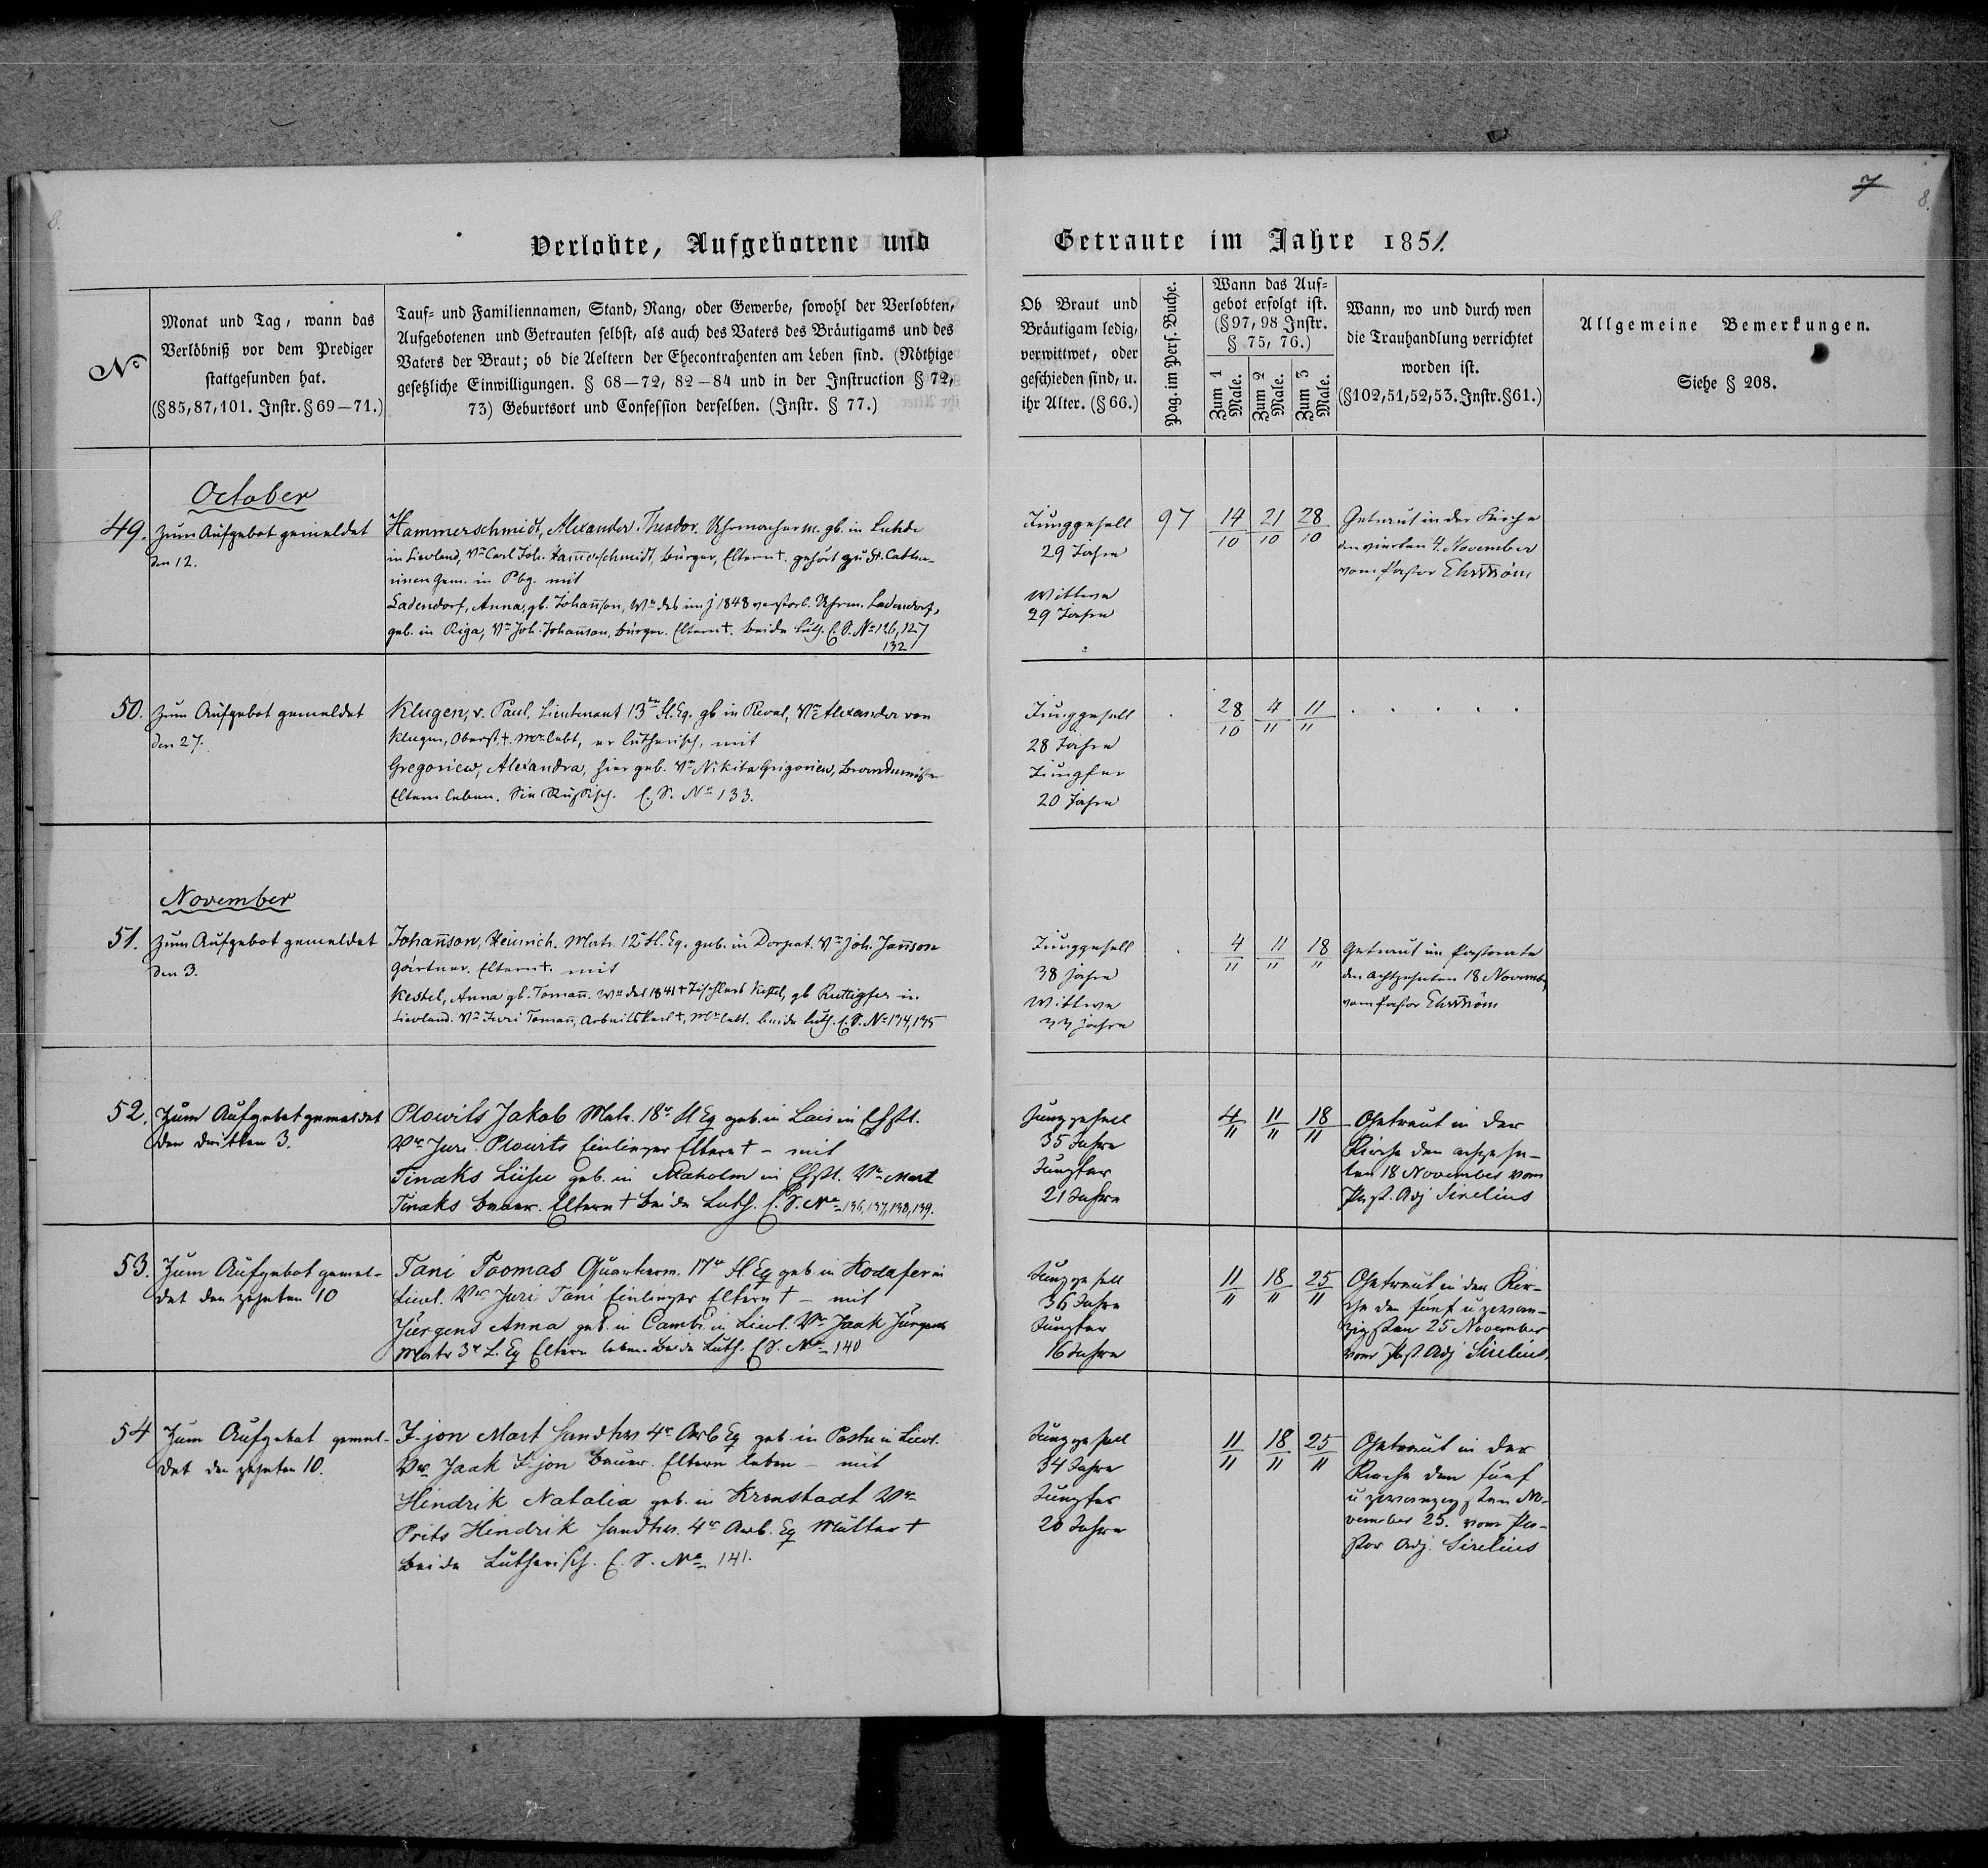 8.
7
8.
Verlobte, Aufgebotene und Getraute im Jahre 1851.
No
Monat und Tag, wann das
Verlöbniß vor dem Prediger
stattgefunden hat.
(§85, 87, 101. Instr. § 69—71.)
Tauf- und Familiennamen, Stand, Rang, oder Gewerbe, sowohl der Verlobten,
Aufgebotenen und Getrauten selbst, als auch des Vaters des Bräutigams und des
Vaters der Braut; ob die Aeltern der Ehecontrahenten am Leben sind. (Nöthige
gesetzliche Einwilligungen. § 68—72, 82—84 und in der Instruction § 72,
73) Geburtsort und Confession derselben. (Instr. § 77.)
Ob Braut und
Bräutigam ledig,
verwittwet, oder
geschieden sind, u.
ihr Alter. (§ 66.)
Pag. im Pers. Buche.
Wann das Auf-
gebot erfolgt ist.
(§ 97, 98 Instr.
§ 75, 76.)
Zum 1 Male.
Zum 2 Male.
Zum 3 Male.
Wann, wo und durch wen
die Trauhandlung verrichtet
worden ist.
(§102, 51, 52, 53. Instr. §61.)
Allgemeine Bemerkungen.
Siehe § 208.
October
49. Zum Aufgebot gemeldet
den 12.
Hammerschmidt, Alexander Theodor. Uhrmacherm. gb. in Luhde
in Livland, Vr Carl Joh. Ham̄erschmidt, Bürger, Eltern †. gehört zu St. Catha-
rinen Gem. in Pbg. mit
Ladendorf, Anna, gb. Johan̄son, Ww des im J 1848 verstorb. Uhrm. Ladendorf,
geb. in Riga, Vr Joh. Johan̄son, Bürger. Eltern †. beide luth. C. S. No 126, 127
132
Junggesell
29 Jahre
Wittwe
29 Jahre
97
14/10 21/10 28/10
Getraut in der Kirche
den vierten 4. November
vom Pastor Ehrström
50. Zum Aufgebot gemeldet
den 27.
Klugen, v. Paul, Lieutenant 13ter Fl. Eq. gb in Reval, Vr Alexander von
Klugen, Oberst, †. Mr lebt, er lutherisch, mit
Gregoriew, Alexandra, hier geb. Vr Nikita Grigoriew, Brandmeister
Eltern leben. Sie Russisch. C. S. No 133.
Junggesell
28 Jahre
Jungfer
20 Jahre
28/10 4/11 11/11
November
51. Zum Aufgebot gemeldet
den 3.
Johan̄son, Heinrich. Matr. 12r Fl. Eq. geb. in Dorpat. Vr Joh. Jan̄son
Gärtner. Eltern †. mit
Kestel, Anna gb. Toman̄. Ww des 1841 † Tischlers Kestel, gb Ruttigfer in
Livland. Vr Juri Toman̄, Arbeitskerl †, Mr lebt. beide luth. C. S. No 134, 135
Junggesell
38 Jahre
Wittwe
33 Jahre
4/11 11/11 18/11
Getraut im Pastorate
den achtzehnten 18 Novemb.
vom Pastor Ehrström
52. Zum Aufgebot gemeldet
den dritten 3.
Plowits Jakob Matr. 18r Fl Eq geb. in Lais in Ehstl.
Vr Juri Plowits Einlinger Eltern † - mit
Tinaks Liisu geb. in Maholm in Ehstl. Vr Mart
Tinaks Bauer. Eltern † beide Luth. C. S. No 136, 137, 138, 139.
Junggesell
35 Jahre
Jungfer
21 Jahre
4/11 11/11 18/11
Getraut in der
Kirche den achtzehn-
ten 18 November vom
Past. Adj Sirelius
53. Zum Aufgebot gemel-
det den zehnten 10
Tani Toomas Quartierm. 17r Fl. Eq geb. in Kodafer in
Livl. Vr Juri Tani Einlinger Eltern † - mit
Jürgens Anna geb. in Cambi in Livl. Vr Jaak Jürgens
Matr 3r L. Eq Eltern leben. Beide Luth. C S. No 140
Junggesell
36 Jahre
Jungfer
16 Jahre
11/11 18/11 25/11
Getraut in der Kir-
che den fünf u zwan-
zigsten 25 November
vom Past. Adj Sirelius.
54 Zum Aufgebot gemel-
det den zehnten 10.
I-jon Mart Handw 4r Arb Eq geb. in Pastu in Livl.
Vr Jaak I-jon Bauer. Eltern leben - mit
Hindrik Natalia geb. in Kronstadt Vr
Prits Hindrik Handw. 4r Arb. Eq Mutter †
beide Lutherisch. C. S. No 141.
Junggesell
34 Jahre
Jungfer
20 Jahre
11/11 18/11 25/11
Getraut in der
Kirche den fünf
u zwanzigsten No-
vember 25. vom Pa-
stor Adj. Sirelius